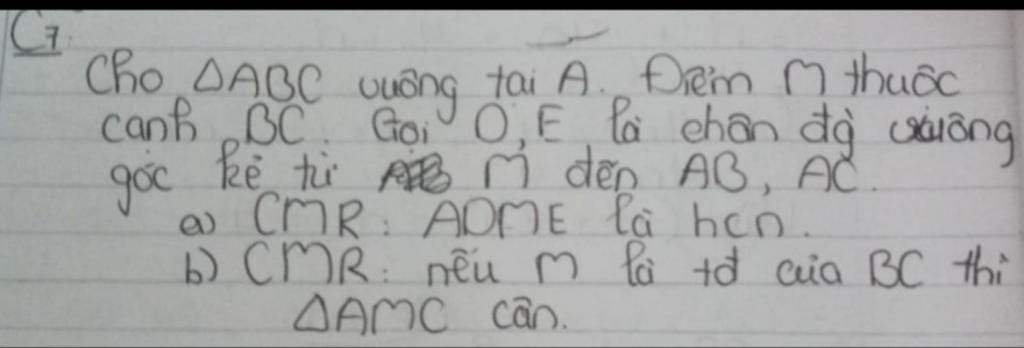 C7
Cho ΔABC vuông tại A. Điểm M thuộc
cạnh BC. Gọi D, E là chân đg vuông
góc kẻ từ M đến AB, AC.
a) CMR: ADME là hcn.
b) CMR: nếu M là tđ của BC thì
ΔAMC cân.